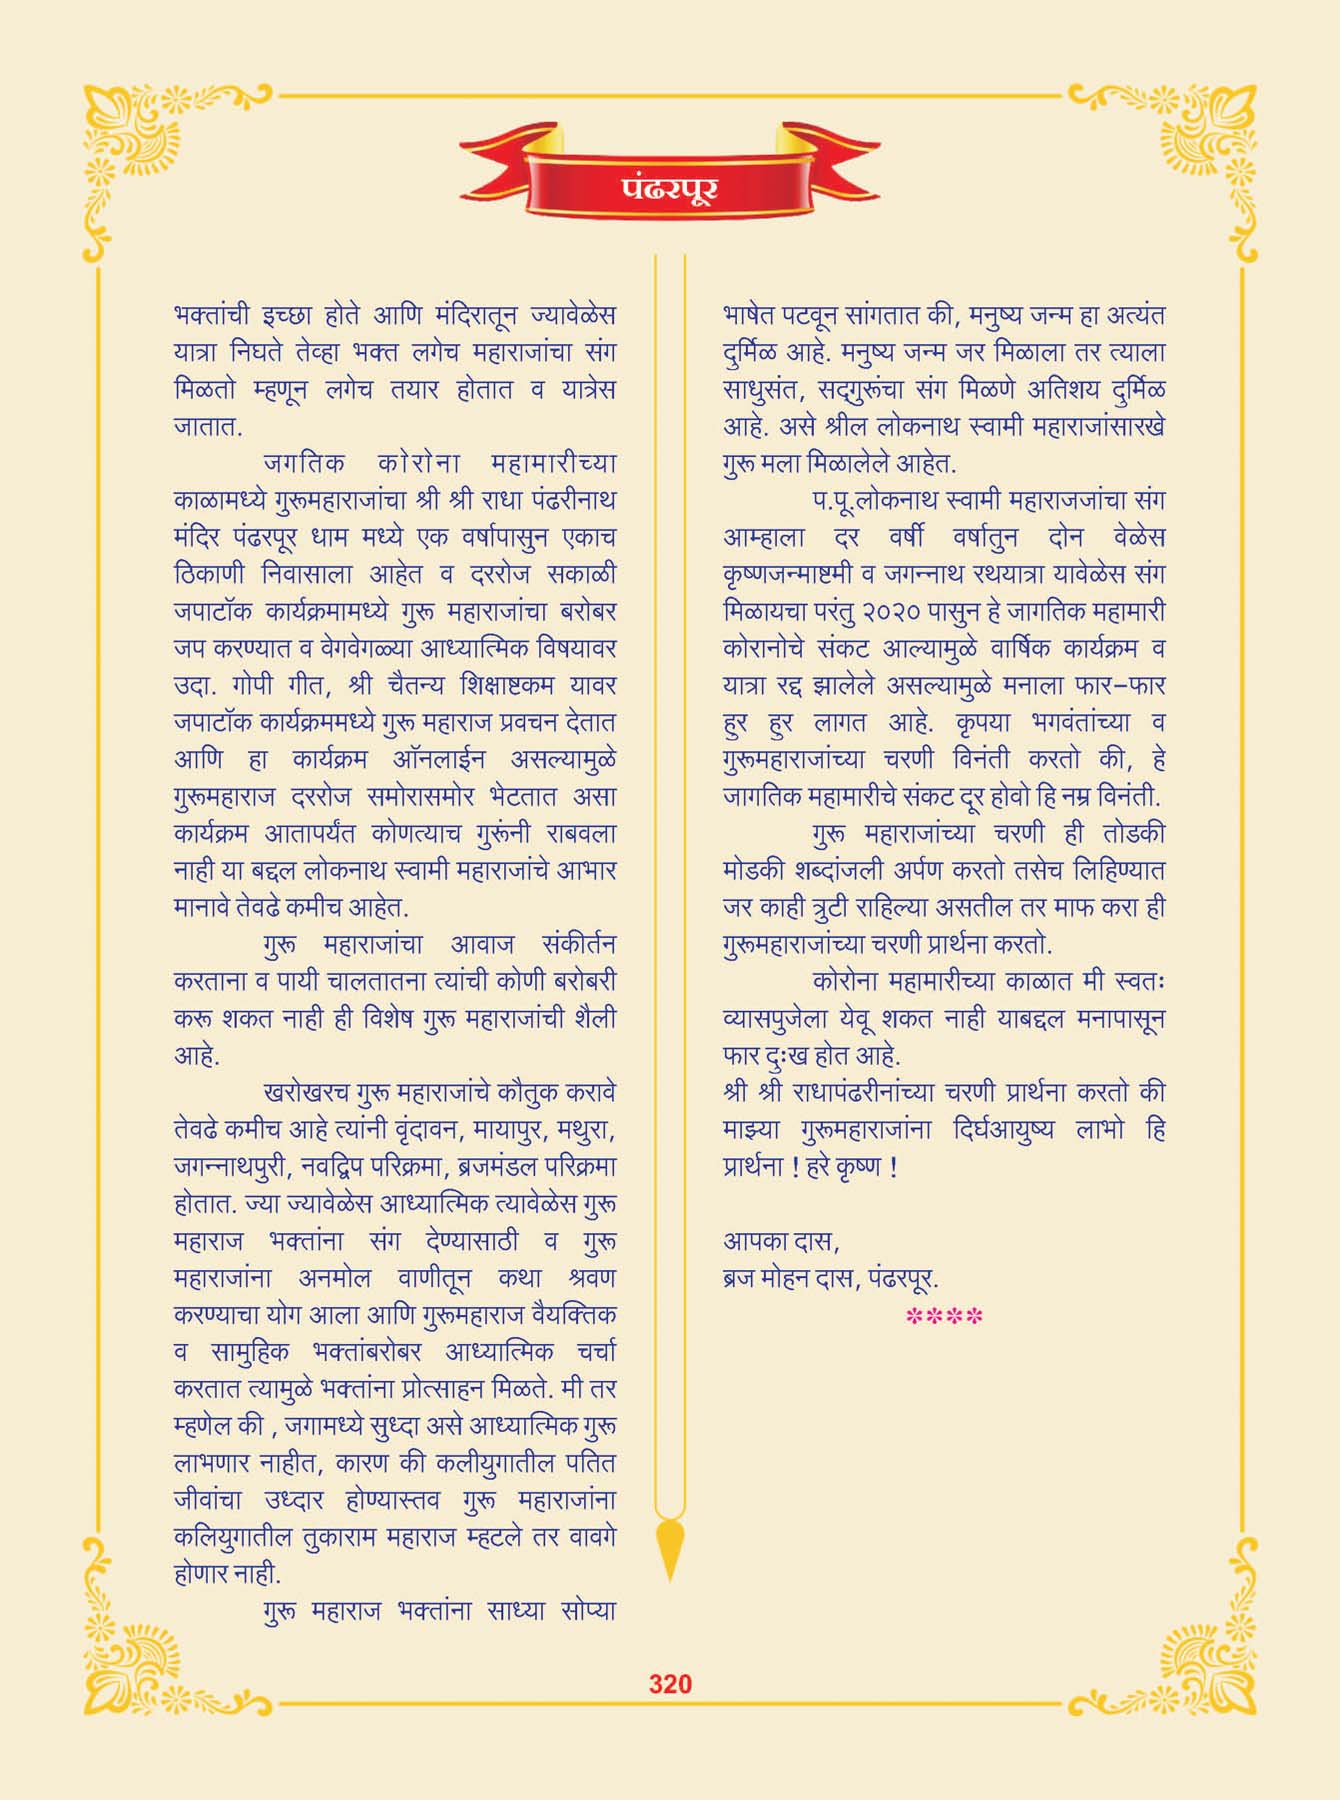 पंढरपूर
भक्तांची इच्छा होते आणि मंदिरातून ज्यावेळेस
यात्रा निघते तेव्हा भक्त लगेच महाराजांचा संग
मिळतो म्हणून लगेच तयार होतात व यात्रेस
जातात.
जगतिक कोरोना महामारीच्या
काळामध्ये गुरूमहाराजांचा श्री श्री राधा पंढरीनाथ
मंदिर पंढरपूर धाम मध्ये एक वर्षापासुन एकाच
ठिकाणी निवासाला आहेत व दररोज सकाळी
जपाटॉक कार्यक्रमामध्ये गुरू महाराजांचा बरोबर
जप करण्यात व वेगवेगळ्या आध्यात्मिक विषयावर
उदा. गोपी गीत, श्री चैतन्य शिक्षाष्टकम यावर
जपाटॉक कार्यक्रममध्ये गुरू महाराज प्रवचन देतात
आणि हा कार्यक्रम ऑनलाईन असल्यामुळे
गुरूमहाराज दररोज समोरासमोर भेटतात असा
कार्यक्रम आतापर्यंत कोणत्याच गुरूंनी राबवला
नाही या बद्दल लोकनाथ स्वामी महाराजांचे आभार
मानावे तेवढे कमीच आहेत.
गुरू महाराजांचा आवाज संकीर्तन
करताना व पायी चालतातना त्यांची कोणी बरोबरी
करू शकत नाही ही विशेष गुरू महाराजांची शैली
आहे.
खरोखरच गुरू महाराजांचे कौतुक करावे
तेवढे कमीच आहे त्यांनी वृंदावन, मायापुर, मथुरा,
जगन्नाथपुरी, नवद्विप परिक्रमा, ब्रजमंडल परिक्रमा
होतात. ज्या ज्यावेळेस आध्यात्मिक त्यावेळेस गुरू
महाराज भक्तांना संग देण्यासाठी व गुरू
महाराजांना अनमोल वाणीतून कथा श्रवण
करण्याचा योग आला आणि गुरूमहाराज वैयक्तिक
व सामुहिक भक्तांबरोबर आध्यात्मिक चर्चा
करतात त्यामुळे भक्तांना प्रोत्साहन मिळते. मी तर
म्हणेल की , जगामध्ये सुध्दा असे आध्यात्मिक गुरू
लाभणार नाहीत, कारण की कलीयुगातील पतित
जीवांचा उध्दार होण्यास्तव गुरू महाराजांना
कलियुगातील तुकाराम महाराज म्हटले तर वावगे
होणार नाही.
गुरू महाराज भक्तांना साध्या सोप्या
भाषेत पटवून सांगतात की, मनुष्य जन्म हा अत्यंत
दुर्मिळ आहे. मनुष्य जन्म जर मिळाला तर त्याला
साधुसंत, सद्‌गुरूंचा संग मिळणे अतिशय दुर्मिळ
आहे. असे श्रील लोकनाथ स्वामी महाराजांसारखे
गुरू मला मिळालेले आहेत.
प.पू.लोकनाथ स्वामी महाराजजांचा संग
आम्हाला दर वर्षी वर्षातुन दोन वेळेस
कृष्णजन्माष्टमी व जगन्नाथ रथयात्रा यावेळेस संग
मिळायचा परंतु २०२० पासुन हे जागतिक महामारी
कोरानोचे संकट आल्यामुळे वार्षिक कार्यक्रम व
यात्रा रद्द झालेले असल्यामुळे मनाला फार-फार
हुर हुर लागत आहे. कृपया भगवंतांच्या व
गुरूमहाराजांच्या चरणी विनंती करतो की, हे
जागतिक महामारीचे संकट दूर होवो हि नम्र विनंती.
गुरू महाराजांच्या चरणी ही तोडकी
मोडकी शब्दांजली अर्पण करतो तसेच लिहिण्यात
जर काही त्रुटी राहिल्या असतील तर माफ करा ही
गुरूमहाराजांच्या चरणी प्रार्थना करतो.
कोरोना महामारीच्या काळात मी स्वतः
व्यासपुजेला येवू शकत नाही याबद्दल मनापासून
फार दुःख होत आहे.
श्री श्री राधापंढरीनांच्या चरणी प्रार्थना करतो की
माझ्या गुरूमहाराजांना दिर्घआयुष्य लाभो हि
प्रार्थना ! हरे कृष्ण !
आपका दास,
ब्रज मोहन दास, पंढरपूर.
****
320